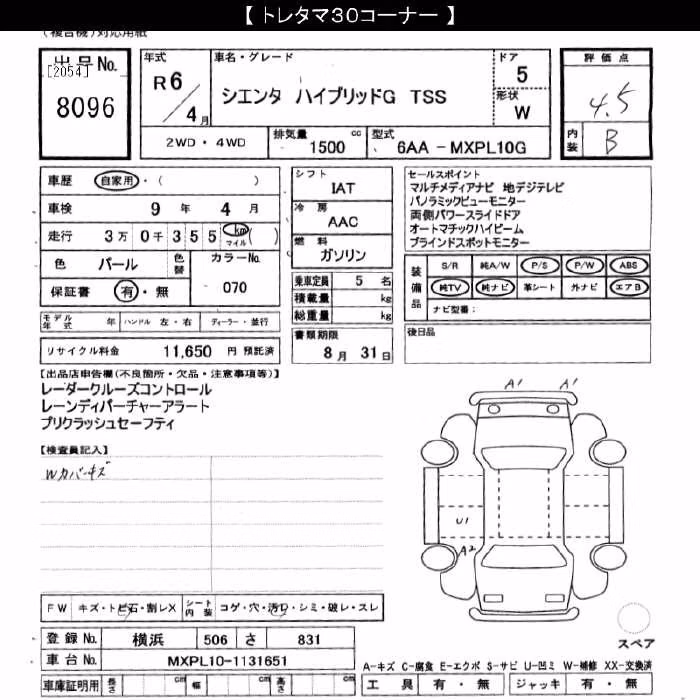 【 トレタマ30コーナー 】
(複合機)対応用紙
出品No.
[2054]
8096
年式
R6/4月
車名・グレード
シエンタ ハイブリッドG TSS
ドア
5
形状
W
評価点
4.5
内装
B
2WD・4WD
排気量 1500 cc
型式 6AA－MXPL10G
車歴 自家用・( )
車検 9年 4月
走行 3万 0千 355 km マイル ( )
色 パール 色替 カラーNo.
保証書 有・無 070
シフト
IAT
冷房
AAC
燃料
ガソリン
乗車定員 5 名
積載量 kg
総重量 kg
セールスポイント
マルチメディアナビ 地デジテレビ
パノラミックビューモニター
両側パワースライドドア
オートマチックハイビーム
ブラインドスポットモニター
装備品
S/R 純A/W P/S P/W ABS
純TV 純ナビ 革シート 外ナビ エアB
ナビ型番：
モデル年式 年 ハンドル 左・右 ディーラー・並行
書類期限
8月 31日
後日品
リサイクル料金 11,650 円 預託済
【出品店申告欄(不良箇所・欠品・注意事項等)】
レーダークルーズコントロール
レーンディパーチャーアラート
プリクラッシュセーフティ
【検査員記入】
Wカバーキズ
A1 A1
U1
A2
FW キズ・トビ石・割レX シート内装 コゲ・穴・汚レ・シミ・破レ・スレ
スペア
登録No. 横浜 506 さ 831
車台No. MXPL10-1131651
A-キズ C-腐食 E-エクボ S-サビ U-凹ミ W-補修 XX-交換済
車庫証明用 長さ cm 幅 cm 高さ cm
工具 有・無 ジャッキ 有・無